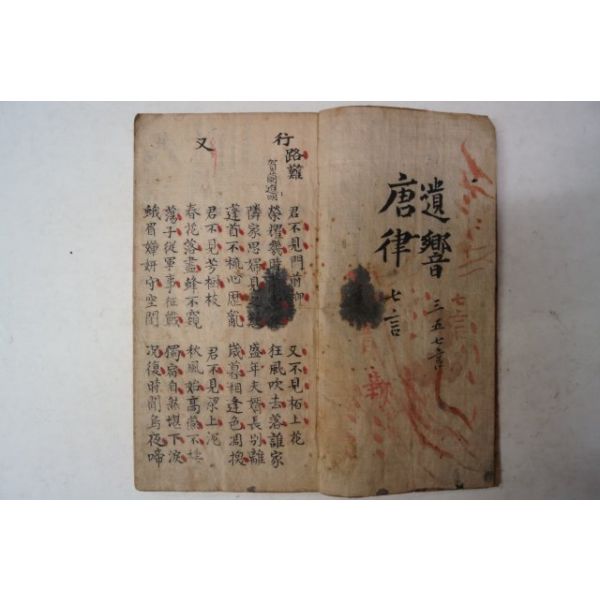 遺響 三五七言
唐律 七言
七言
行路難 賀蘭進明
君不見門前柳 又不見陌上花
榮耀 時 狂風吹去落誰家
隣家思婦見之 盛年夫婿長別離
蓬首不梳心歷亂 歲暮相逢色凋換
又
君不見芳樹枝 君不見梁上泥
春花落盡蜂不窺 秋風始高燕不棲
蕩子從軍事征戰 獨宿自然堪下淚
蛾眉嬋妍守空閨 況復時聞烏夜啼